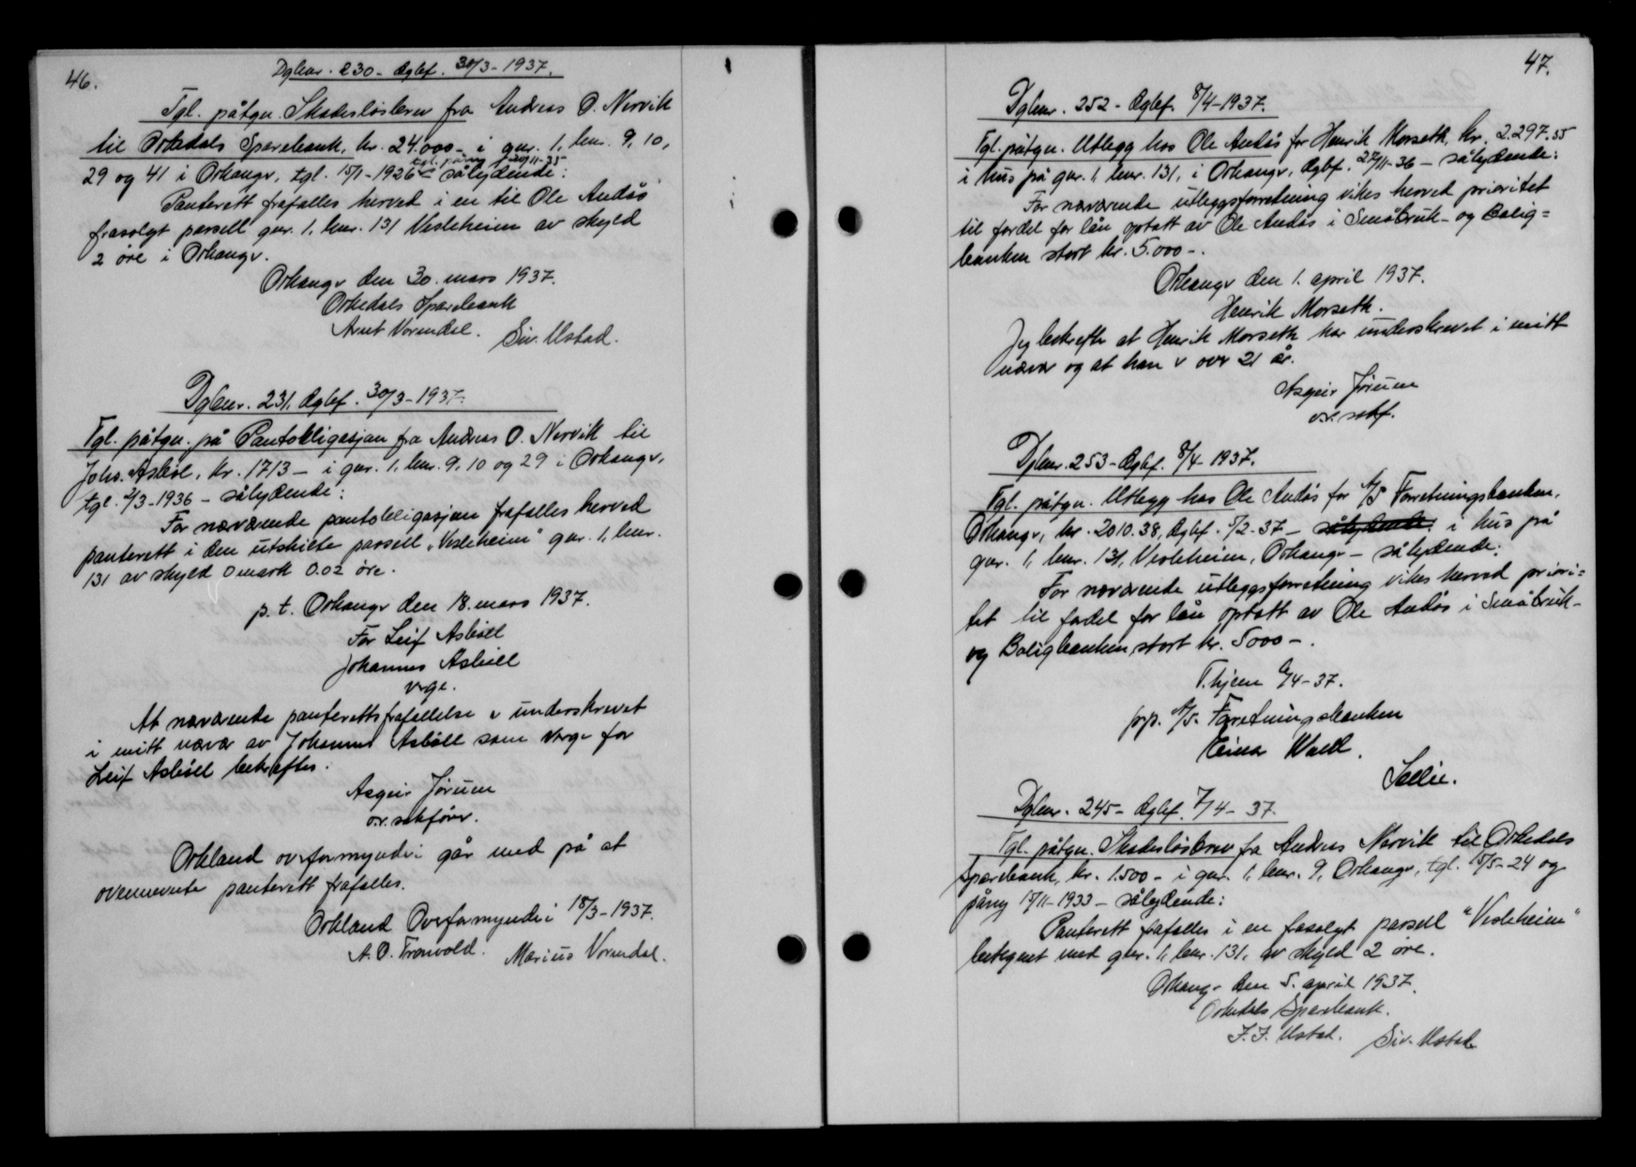 46.
Dgbnr. 230 - dgbf. 30/3 - 1937.
Tgl. påtgn. Skadesløsbrev fra Andreas O. Nervik
til Orkedals Sparebank, kr. 24.000 - i gnr. 1, bnr. 9, 10,
tgl. påny 20/11-35
29 og 41 i Orkanger, tgl. 15/1 - 1926 - sålydende:
Panterett frafalles herved i en til Ole Andås
frasolgt parsell gnr. 1. bnr. 131 Vesleheim av skyld
2 øre i Orkanger.
Orkanger den 30. mars 1937.
Orkedals Sparebank
Arnt Vormdal. Siv. Ustad.
Dgbnr. 231. dgbf. 30/3 - 1937.
Tgl. påtgn. på Pantobligasjon fra Andreas O. Nervik til
Johs. Asbøll, kr. 1713 - i gnr. 1, bnr. 9, 10 og 29 i Orkanger,
tgl. 2/3 - 1936 - sålydende:
For nærværende pantobligasjon frafalles herved
panterett i den utskilte parsell "Vesleheim" gnr. 1, bnr.
131 av skyld 0 mark 0.02 øre.
p. t. Orkanger den 18. mars 1937.
For Leif Asbøll
Johannes Asbøll
verge.
At nærværende panterettsfrafallelse er underskrevet
i mitt nærvær av Johannes Asbøll som verge for
Leif Asbøll bekreftes.
Asgeir Jørum
o.r. sakfører.
Orkland overformynderi går med på at
ovennevnte panterett frafalles.
Orkland Overformynderi 18/3 - 1937.
A. O. Tronvold. Marius Vormdal.
47.
Dgbnr. 252 - dgbf. 8/4 - 1937.
Tgl. påtgn. Utlegg hos Ole Andås for Henrik Morseth, kr. 2.297.55
i hus på gnr. 1, bnr. 131, i Orkanger, dgbf. 27/11-36 - sålydende:
For nærværende utleggsforretning vikes herved prioritet
til fordel for lån optatt av Ole Andås i Småbruk- og Bolig=
banken stort kr. 5.000 -.
Orkanger den 1. april 1937.
Henrik Morseth.
Jeg bekrefter at Henrik Morseth har underskrevet i mitt
nærvær og at han er over 21 år.
Asgeir Jørum
o.r. sakf.
Dgbnr. 253 - dgbf. 8/4 - 1937.
Tgl. påtgn. Utlegg hos Ole Andås for A/S Forretningsbanken,
Orkanger, kr. 2010.38, dgbf. 5/2-37 - sålydende: i hus på
gnr. 1, bnr. 131, Vesleheim, Orkanger - sålydende:
For nærværende utleggsforretning vikes herved priori=
tet til fordel for lån optatt av Ole Andås i Småbruk-
og Boligbanken, stort kr. 5000 -.
T.hjem 6/4-37.
prp. A/S. Forretningsbanken
Einar Wald.
Sollie.
Dgbnr. 245 - dgbf. 7/4 - 37.
Tgl. påtgn. Skadesløsbrev fra Andreas Nervik til Orkedals
Sparebank, kr. 1.500 - i gnr. 1, bnr. 9, Orkanger, tgl. 15/5-24 og
påny 17/11-1933 - sålydende:
Panterett frafalles i en frasolgt parsell "Vesleheim"
betegnet med gnr. 1, bnr. 131, av skyld 2 øre.
Orkanger den 5. april 1937.
Orkedals Sparebank.
J. J. Ustad. Siv. Ustad